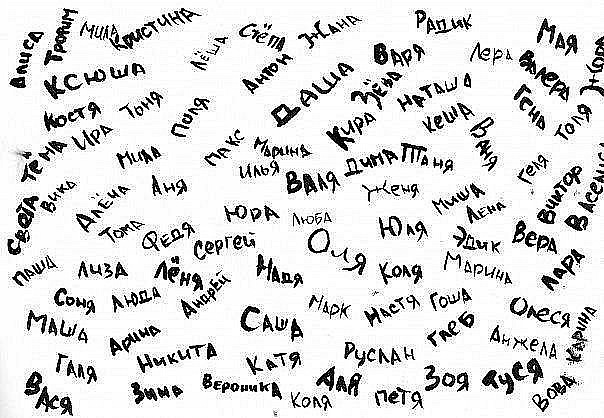 Алиса
Трофим
Мила
Кристина
Лёша
Стёпа
Жана
Радик
Варя
Лера
Мая
Валера
Жора
Ксюша
Антон
Даша
Зёва
Наташа
Гена
Толя
Костя
Тоня
Поля
Кира
Кеша
Ваня
Тёма
Ира
Мила
Макс
Марина
Илья
Валя
Дима
Таня
Геля
Виктор
Василиса
Света
Вика
Алёна
Аня
Женя
Миша
Лена
Тома
Федя
Юра
Люба
Юля
Эдик
Вера
Сергей
Оля
Паша
Лиза
Лёня
Надя
Коля
Марина
Лара
Соня
Люда
Андрей
Марк
Настя
Гоша
Олеся
Маша
Арина
Саша
Глеб
Анжела
Карина
Галя
Никита
Катя
Руслан
Вася
Зина
Вероника
Коля
Аля
Петя
Зоя
Туся
Вова